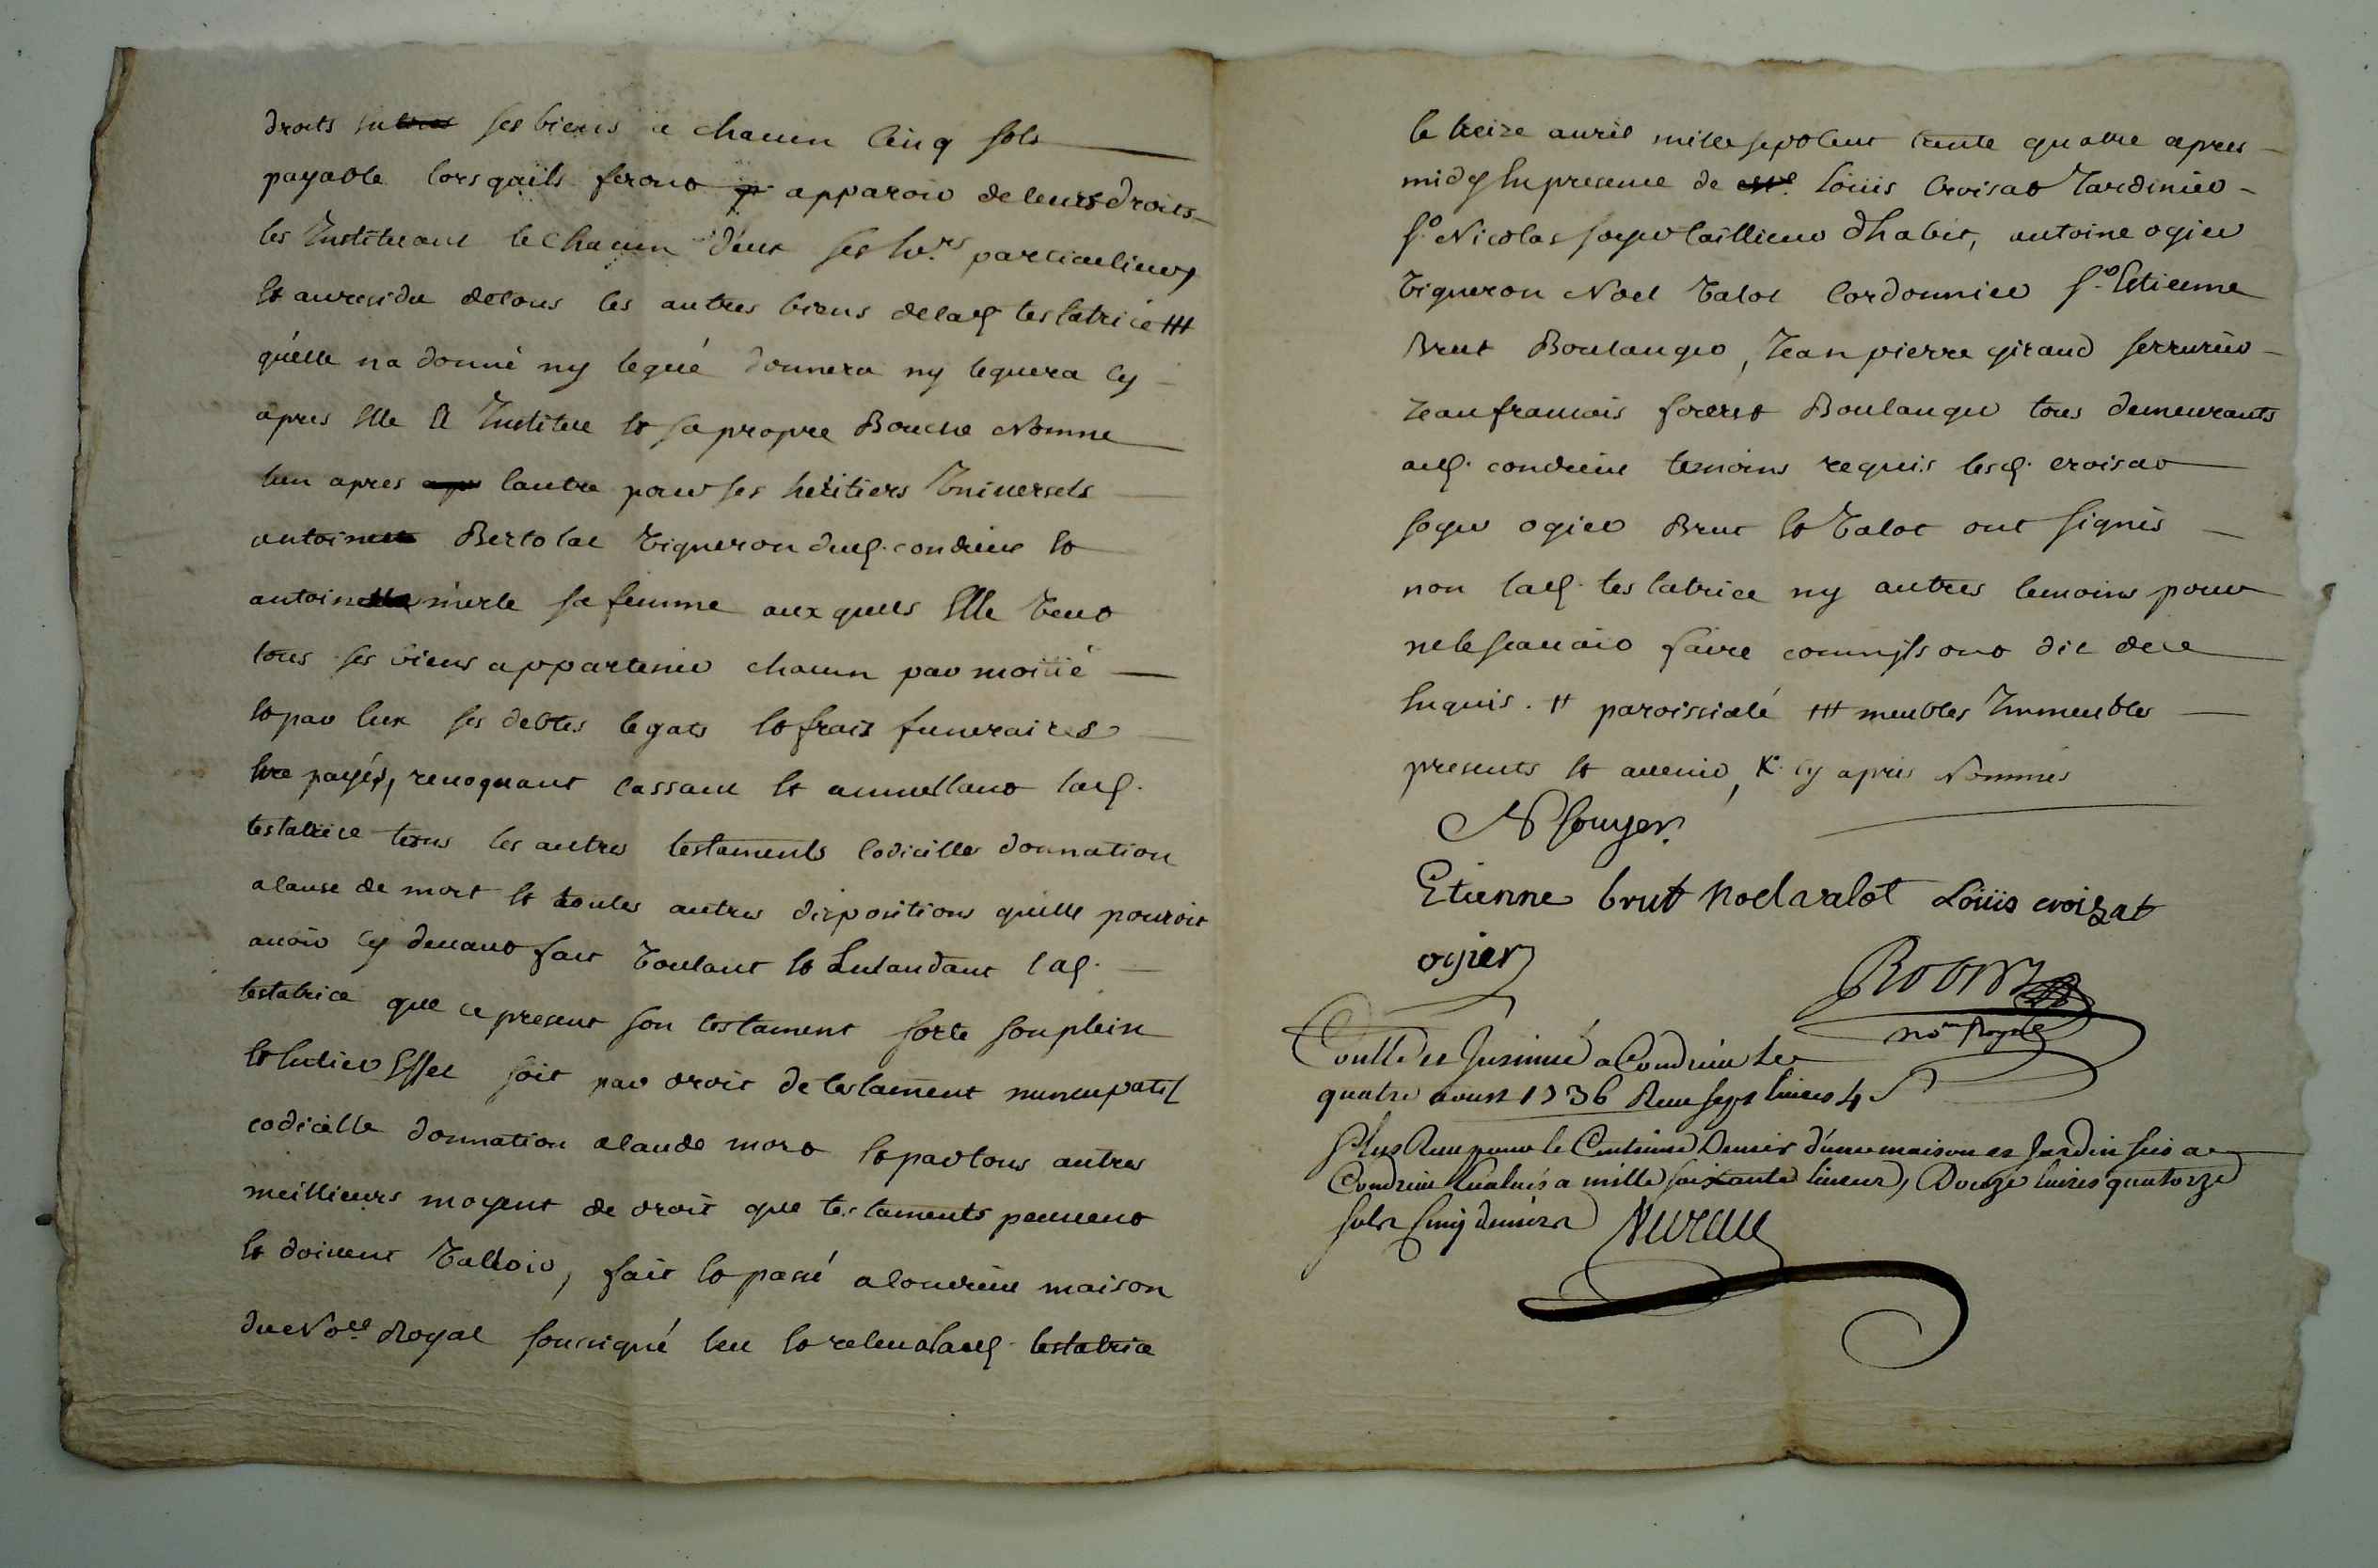 droits sur ses biens a chacun Cinq sols
payable lorsquils feront apparoir de leurs droits
les Instituant Et chacun d'eux ses hrs particuliers
Et au residu de tous les autres biens de lad testatrice ttt
qu'elle na donné ny legué donnera ny leguera Cy
apres Elle A Institué Et sa propre Bouche Nomme
lun apres lautre pour ses heritiers Vniversels
antoine Bertolat Vigneron dud. condrieu Et
antoinette merle sa femme aux quels Elle Veut
tous ses biens appartenir chacun par moitié
Et par Eux ses debtes legats Et frais funeraires
Etre payés, revoquant Cassant Et annullant lad.
testatrice tous les autres testaments Codicilles donnation
a Cause de mort Et toutes autres dispositions qu'elle pouroit
avoir Cy devant fait Voulant Et Entandant lad.
testatrice que ce present son testament sorte son plein
Et Entier Effet soit par droit de testament nuncupatif
codicille donnation a Cause de mort Et par tous autres
meillieurs moyens de droit que testaments peuvent
Et doivent Valloir, fait Et passé a Condrieu maison
du Nore Royal soussigné leu Et releu a lad. testatrice
le treize avril mille sept Cent trente quatre apres
midy En presence de Loüis Croisat Jardinier
Sr Nicolas soyer taillieur dhabit, antoine ogier
Vigneron Noel Valot Cordonnier Sr Estienne
Brut Boulanger, Jean pierre giraud serrurier
Jean francois forest Boulanger tous demeurants
aud. condrieu temoins requis lesd. croisat
soyer ogier Brut Et Valot ont signés
non lad. testatrice ny autres temoins pour
ne le scavoir faire comm'ils ont dit de ce
Enquis. tt paroissiale ttt meubles Immeubles
presents Et avenir, K. Cy apres Nommés
N Souyer
Etienne brut Noel valot Loüis croizat
ogier
no.re Royal
Conllé et Insinué a Condrieu Le
quatre aoust 1736 Receu sept livres 4 s
Plus Receu pour le Centieme Denier d'une maison et Jardin sis a
Condrieu Evalués a mille soixante livres, Douze livres quatorze
sols Cinq deniers